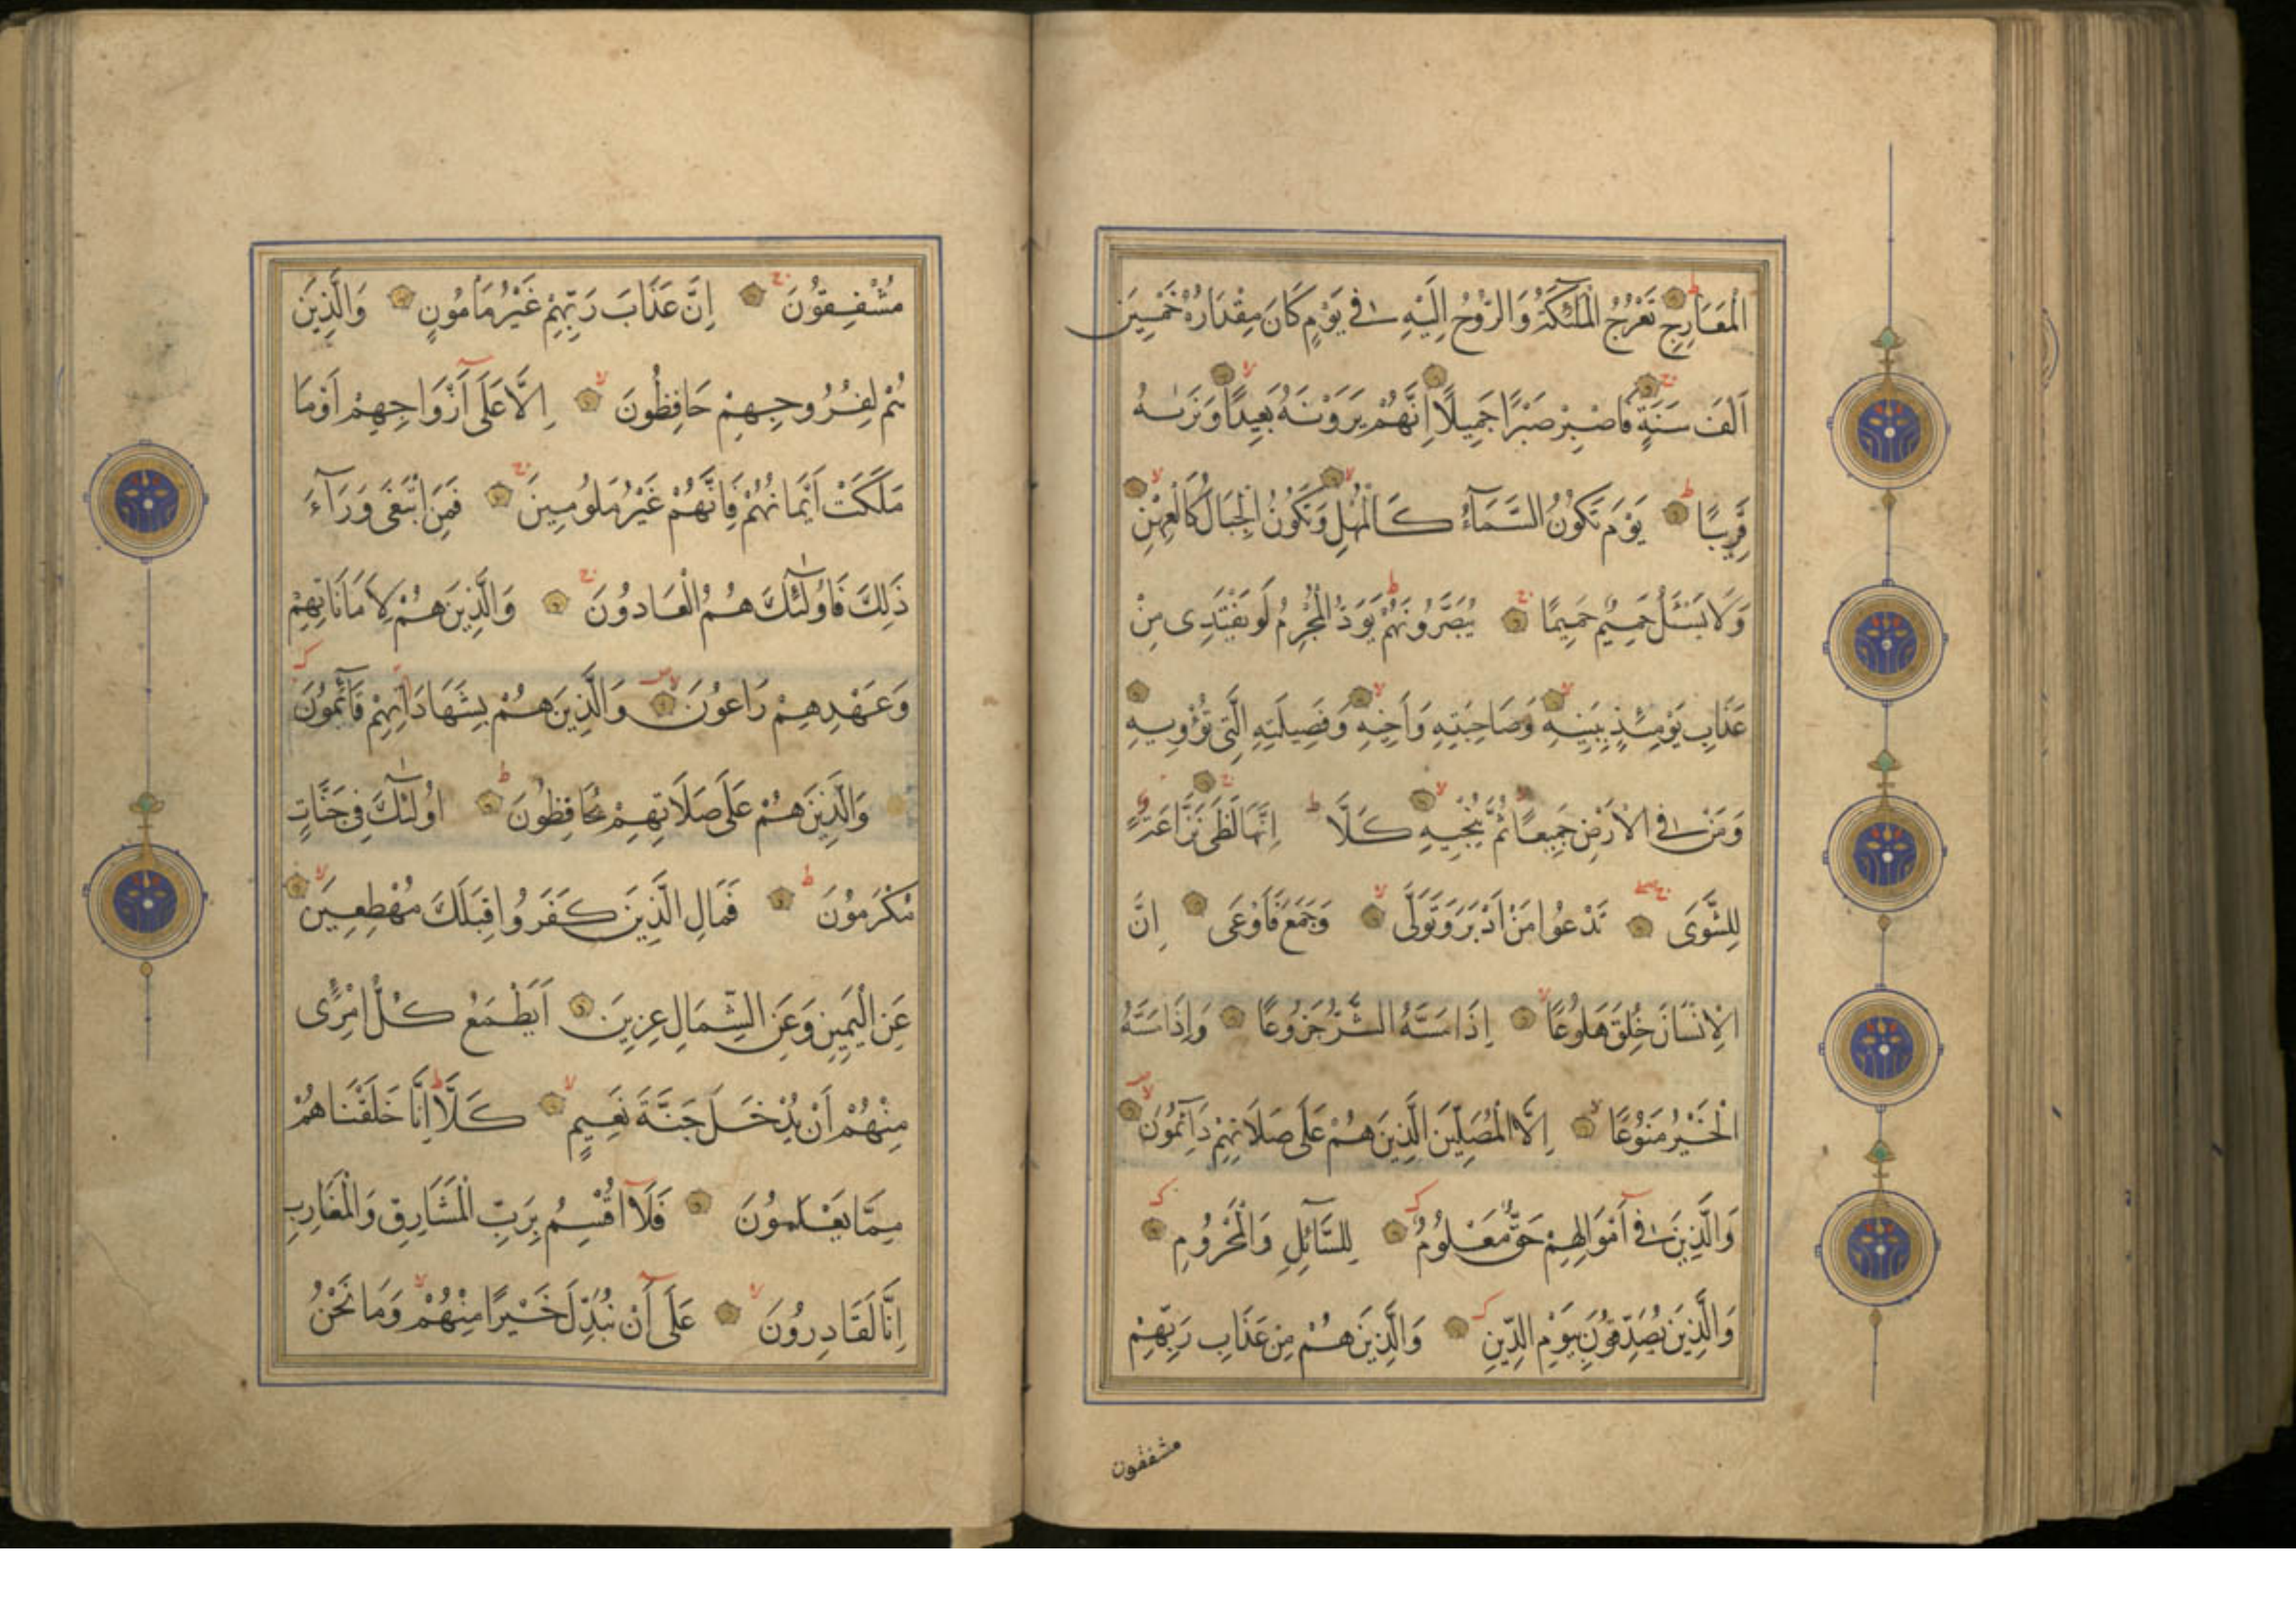 الْمَعَارِجِ تَعْرُجُ الْمَلٰئِكَةُ وَالرُّوحُ اِلَيْهِ فٖى يَوْمٍ كَانَ مِقْدَارُهُ خَمْسٖينَ
اَلْفَ سَنَةٍ فَاصْبِرْ صَبْرًا جَمٖيلًا اِنَّهُمْ يَرَوْنَهُ بَعٖيدًا وَنَرٰيهُ
قَرٖيبًا يَوْمَ تَكُونُ السَّمَآءُ كَالْمُهْلِ وَتَكُونُ الْجِبَالُ كَالْعِهْنِ
وَلَا يَسْئَلُ حَمٖيمٌ حَمٖيمًا يُبَصَّرُونَهُمْ يَوَدُّ الْمُجْرِمُ لَوْ يَفْتَدٖى مِنْ
عَذَابِ يَوْمِئِذٍ بِبَنٖيهِ وَصَاحِبَتِهِ وَاَخٖيهِ وَفَصٖيلَتِهِ الَّتٖى تُؤْوٖيهِ
وَمَنْ فِى الْاَرْضِ جَمٖيعًا ثُمَّ يُنْجٖيهِ كَلَّا اِنَّهَا لَظَى نَزَّاعَةً
لِلشَّوَى تَدْعُوا مَنْ اَدْبَرَ وَتَوَلَّى وَجَمَعَ فَاَوْعَى اِنَّ
الْاِنْسَانَ خُلِقَ هَلُوعًا اِذَا مَسَّهُ الشَّرُّ جَزُوعًا وَاِذَا مَسَّهُ
الْخَيْرُ مَنُوعًا اِلَّا الْمُصَلّٖينَ الَّذٖينَ هُمْ عَلَى صَلَاتِهِمْ دَآئِمُونَ
وَالَّذٖينَ فٖى اَمْوَالِهِمْ حَقٌّ مَعْلُومٌ لِلسَّآئِلِ وَالْمَحْرُومِ
وَالَّذٖينَ يُصَدِّقُونَ بِيَوْمِ الدّٖينِ وَالَّذٖينَ هُمْ مِنْ عَذَابِ رَبِّهِمْ
مشفقون
مُشْفِقُونَ اِنَّ عَذَابَ رَبِّهِمْ غَيْرُ مَاْمُونٍ وَالَّذٖينَ
هُمْ لِفُرُوجِهِمْ حَافِظُونَ اِلَّا عَلَى اَزْوَاجِهِمْ اَوْ مَا
مَلَكَتْ اَيْمَانُهُمْ فَاِنَّهُمْ غَيْرُ مَلُومٖينَ فَمَنِ ابْتَغَى وَرَآءَ
ذَلِكَ فَاُولٰئِكَ هُمُ الْعَادُونَ وَالَّذٖينَ هُمْ لِاَمَانَاتِهِمْ
وَعَهْدِهِمْ رَاعُونَ وَالَّذٖينَ هُمْ بِشَهَادَاتِهِمْ قَآئِمُونَ
وَالَّذٖينَ هُمْ عَلَى صَلَاتِهِمْ يُحَافِظُونَ اُولٰئِكَ فٖى جَنَّاتٍ
مُكْرَمُونَ فَمَالِ الَّذٖينَ كَفَرُوا قِبَلَكَ مُهْطِعٖينَ
عَنِ الْيَمٖينِ وَعَنِ الشِّمَالِ عِزٖينَ اَيَطْمَعُ كُلُّ امْرِئٍ
مِنْهُمْ اَنْ يُدْخَلَ جَنَّةَ نَعٖيمٍ كَلَّا اِنَّا خَلَقْنَاهُمْ
مِمَّا يَعْلَمُونَ فَلَآ اُقْسِمُ بِرَبِّ الْمَشَارِقِ وَالْمَغَارِبِ
اِنَّا لَقَادِرُونَ عَلَى اَنْ نُبَدِّلَ خَيْرًا مِنْهُمْ وَمَا نَحْنُ